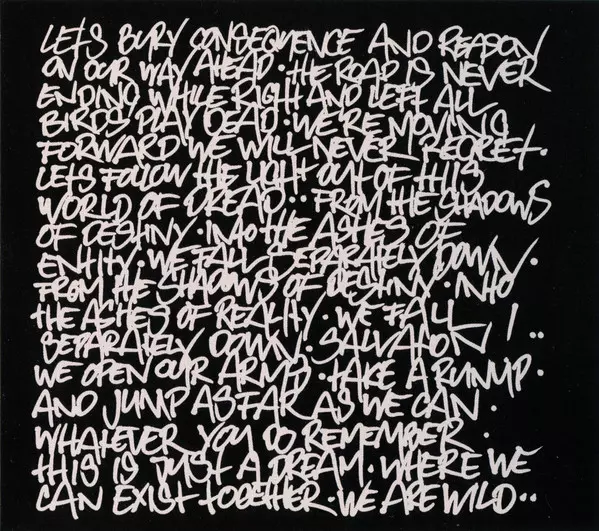 LETS BURY CONSEQUENCE AND REASON
ON OUR WAY AHEAD · THE ROAD IS NEVER
ENDING WHILE RIGHT AND LEFT ALL
BIRDS PLAY DEAD · WE'RE MOVING
FORWARD WE WILL NEVER REGRET ·
LETS FOLLOW THE LIGHT OUT OF THIS
WORLD OF DREAD ·· FROM THE SHADOWS
OF DESTINY · INTO THE ASHES OF
ENTITY · WE FALL SEPARATELY DOWN ·
FROM THE SHADOWS OF DESTINY · INTO
THE ASHES OF REALITY · WE FALL
SEPARATELY DOWN · SALVATION ! ··
WE OPEN OUR ARMS · TAKE A RUNUP ·
AND JUMP AS FAR AS WE CAN ·
WHATEVER YOU DO REMEMBER ·
THIS IS JUST A DREAM · WHERE WE
CAN EXIST TOGETHER · WE ARE WILD ··